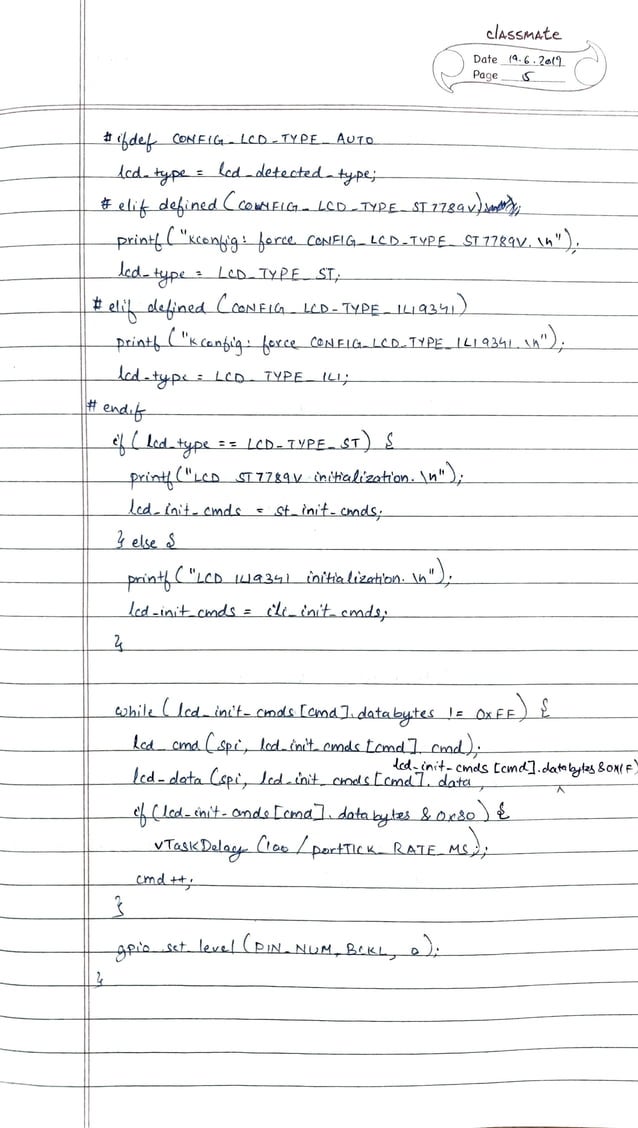 classmate
Date 19.6.2019
Page 5
#ifdef CONFIG_LCD_TYPE_AUTO
lcd_type = lcd_detected_type;
#elif defined(CONFIG_LCD_TYPE_ST7789V)
printf("kconfig: force CONFIG_LCD_TYPE_ST7789V.\n");
lcd_type = LCD_TYPE_ST;
#elif defined (CONFIG_LCD_TYPE_ILI9341)
printf("kconfig: force CONFIG_LCD_TYPE_ILI9341.\n");
lcd_type = LCD_TYPE_ILI;
#endif
if (lcd_type == LCD_TYPE_ST) {
printf("LCD ST7789V initialization.\n");
lcd_init_cmds = st_init_cmds;
} else {
printf("LCD ILI9341 initialization.\n");
lcd_init_cmds = ili_init_cmds;
}
while (lcd_init_cmds[cmd].databytes != 0xFF) {
lcd_cmd (spi, lcd_init_cmds[cmd].cmd);
lcd_data (spi, lcd_init_cmds[cmd].data, lcd_init_cmds[cmd].databytes & 0x1F)
if (lcd_init_cmds[cmd].databytes & 0x80) {
vTaskDelay (100 / portTICK_RATE_MS);
cmd++;
}
gpio_set_level (PIN_NUM_BCKL, 0);
}